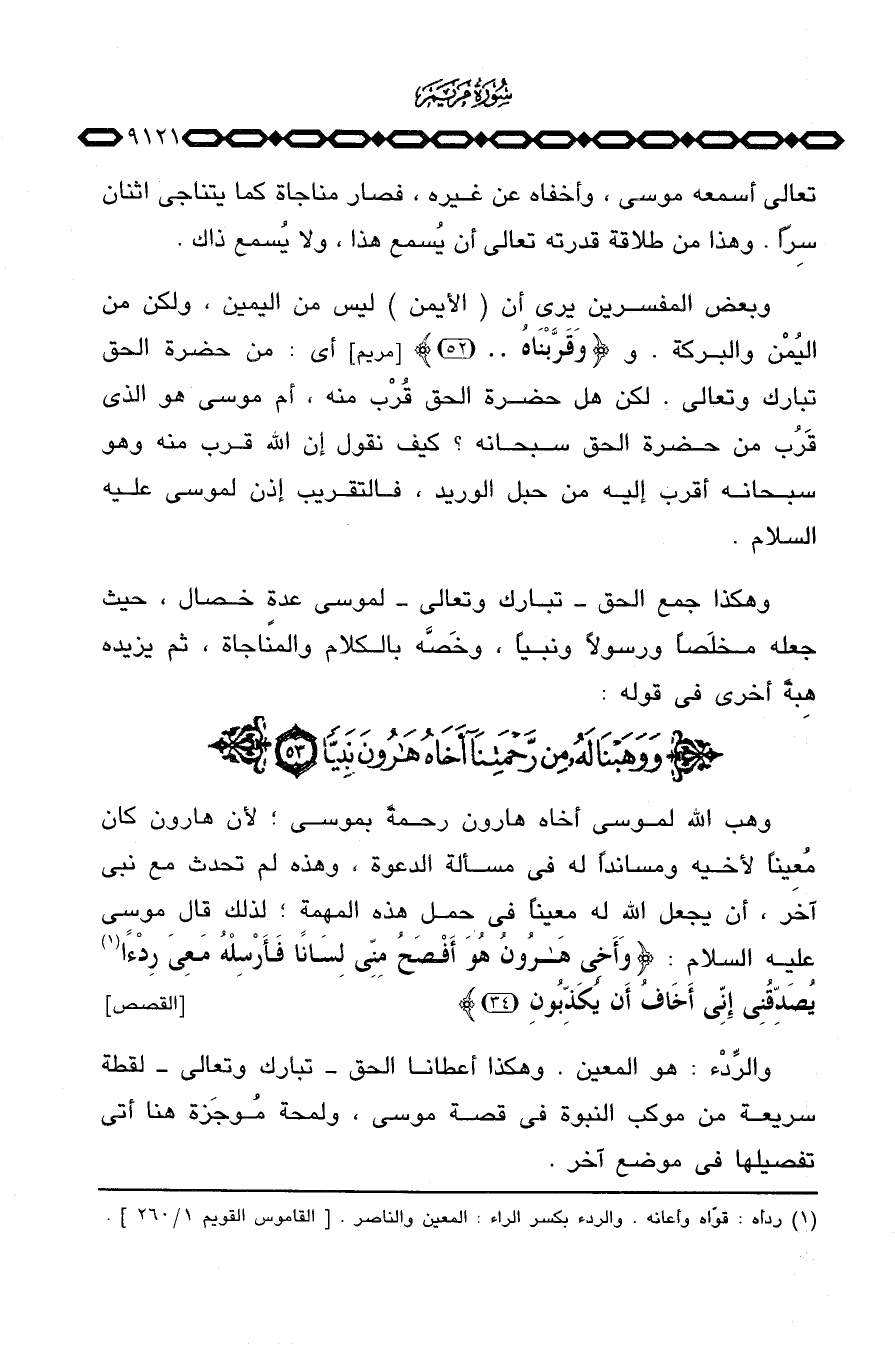 سُورَةُ مَرْيَمَ
٩١٢١
تعالى أسمعه موسى ، وأخفاه عن غيره ، فصار مناجاة كما يتناجى اثنان
سِراً . وهذا من طلاقة قدرته تعالى أن يُسمع هذا ، ولا يُسمع ذاك .
وبعض المفسرين يرى أن ( الأيمن ) ليس من اليمين ، ولكن من
اليُمْن والبركة . و ﴿ وَقَرَّبْنَاهُ .. (٥٢) ﴾ [مريم] أى : من حضرة الحق
تبارك وتعالى . لكن هل حضرة الحق قُرْب منه ، أم موسى هو الذى
قَرُب من حضرة الحق سبحانه ؟ كيف نقول إن الله قرب منه وهو
سبحانه أقرب إليه من حبل الوريد ، فالتقريب إذن لموسى عليه
السلام .
وهكذا جمع الحق - تبارك وتعالى - لموسى عدة خصال ، حيث
جعله مخلَصاً ورسولاً ونبياً ، وخَصَّه بالكلام والمناجاة ، ثم يزيده
هِبةً أخرى فى قوله :
﴿ وَوَهَبْنَا لَهُ مِن رَّحْمَتِنَا أَخَاهُ هَارُونَ نَبِيًّا ٥٣ ﴾
وهب الله لموسى أخاه هارون رحمةً بموسى ؛ لأن هارون كان
مُعِيناً لأخيه ومسانداً له فى مسألة الدعوة ، وهذه لم تحدث مع نبى
آخر ، أن يجعل الله له معيناً فى حمل هذه المهمة ؛ لذلك قال موسى
عليه السلام : ﴿ وَأَخِى هَـٰرُونُ هُوَ أَفْصَحُ مِنِّى لِسَانًا فَأَرْسِلْهُ مَعِىَ رِدْءًا (١)
يُصَدِّقُنِى إِنِّى أَخَافُ أَن يُكَذِّبُونِ (٣٤) ﴾ [القصص]
والرِّدْء : هو المعين . وهكذا أعطانا الحق - تبارك وتعالى - لقطة
سريعة من موكب النبوة فى قصة موسى ، ولمحة مُوجَزة هنا أتى
تفصيلها فى موضع آخر .
(١) ردأه : قوّاه وأعانه . والردء بكسر الراء : المعين والناصر . [ القاموس القويم ٢٦٠/١ ] .